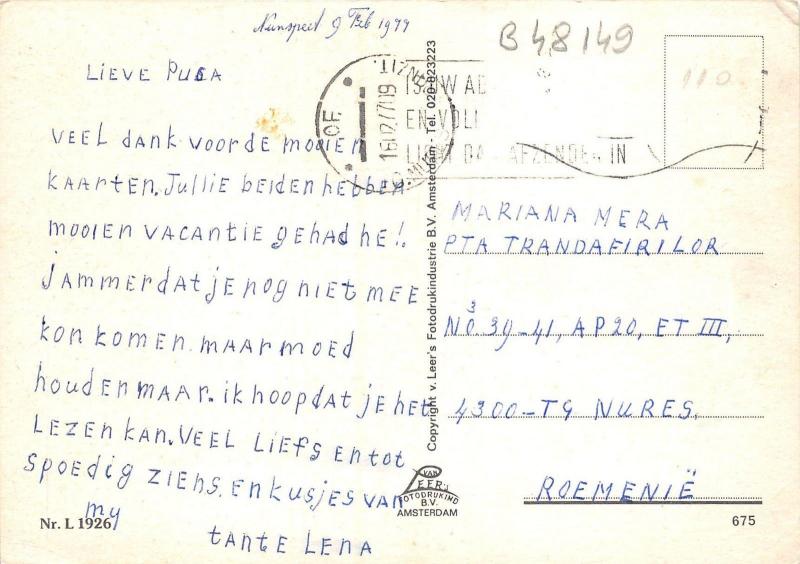 Nunspeet 9 Feb 1977
B 48149
110
LIEVE PUCA
VEEL dank voor de mooien
KAARTEN. JULLIE beiden hebben
mooien VACANTIE gehad he!.
jammer dat je nog niet mee
kon komen. maar moed
houden maar. ik hoop dat je het
LEZEN kan. VEEL LIEFS EN tot
spoedig ziens. en kusjes van
my
tante Lena
16.02.77.09
IS UW AD
EN VOLL
AFZENDER IN
MARIANA MERA
PTA TRANDAFIRILOR
NO. 39-41, AP 20, ET III,
3
4300-TG NURES.
ROEMENIË
Copyright v. Leer's Fotodrukindustrie B.V. Amsterdam - Tel. 020-823223
VAN
LEER'S
FOTODRUKIND
B.V.
AMSTERDAM
Nr. L 1926
675